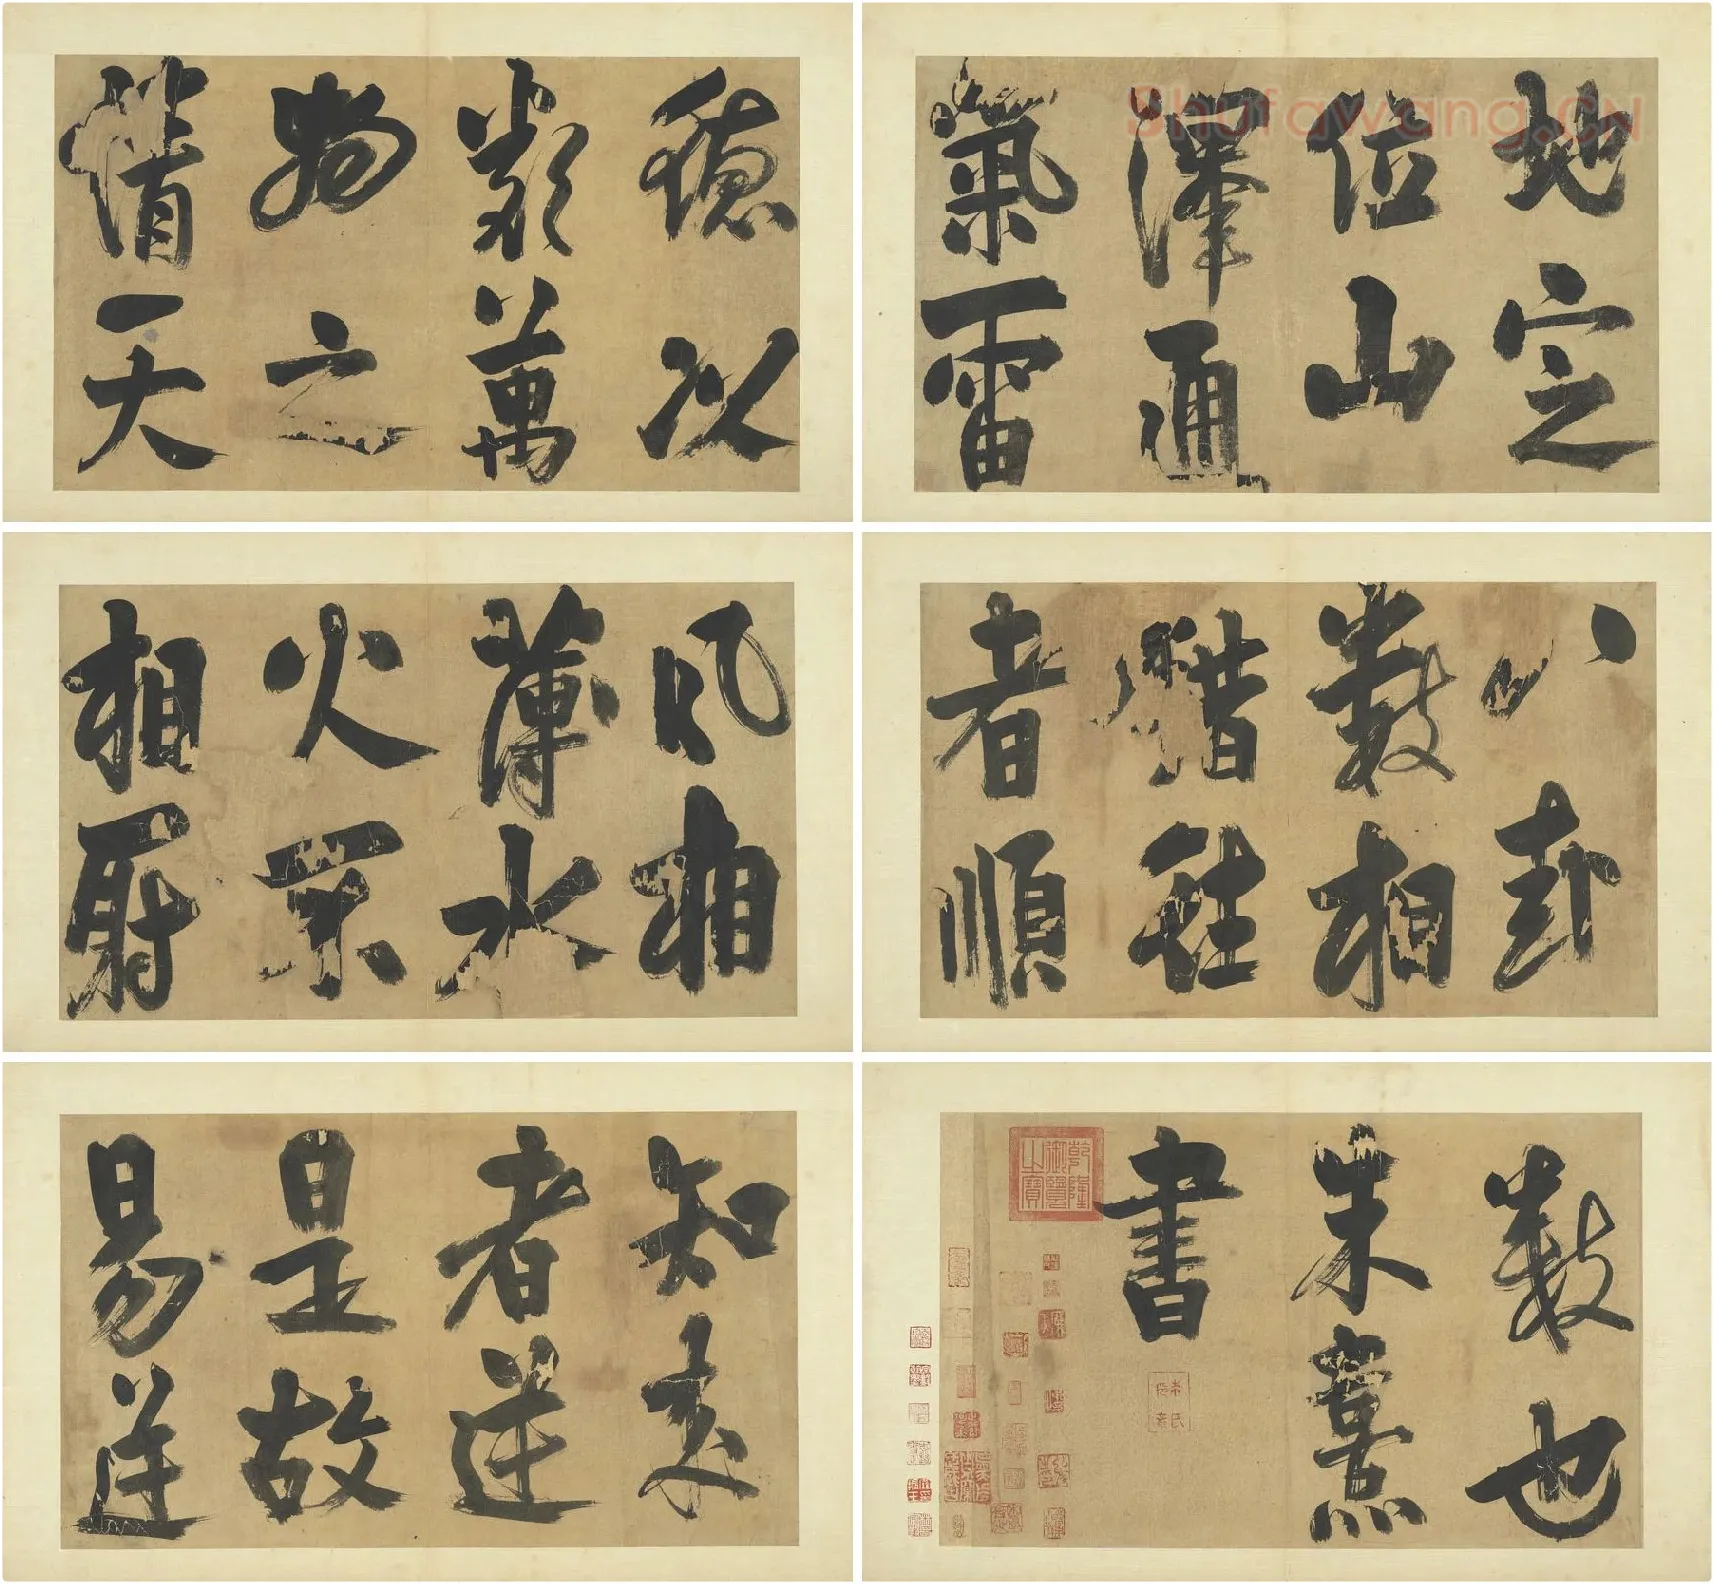 德以
類萬
物之
情天
Shufawang.CN
地定
位山
澤通
氣雷
風相
薄水
火不
相射
八卦
數相
錯往
者順
知來
者逆
是故
易逆
數也
朱熹
書
乾隆
御覽
之寶